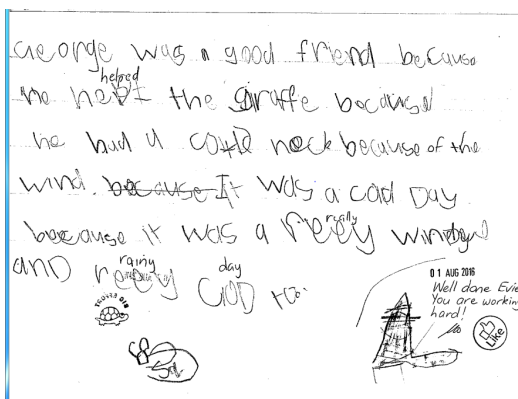 George was a good friend because
helped
he helpt the giraffe because
he had a could neck because of the
wind. because It was a cad Day
because it was a reey windy
really
rainy day
AND reey
TOO
01 AUG 2016
Well done Evie
You are working
hard!
Like